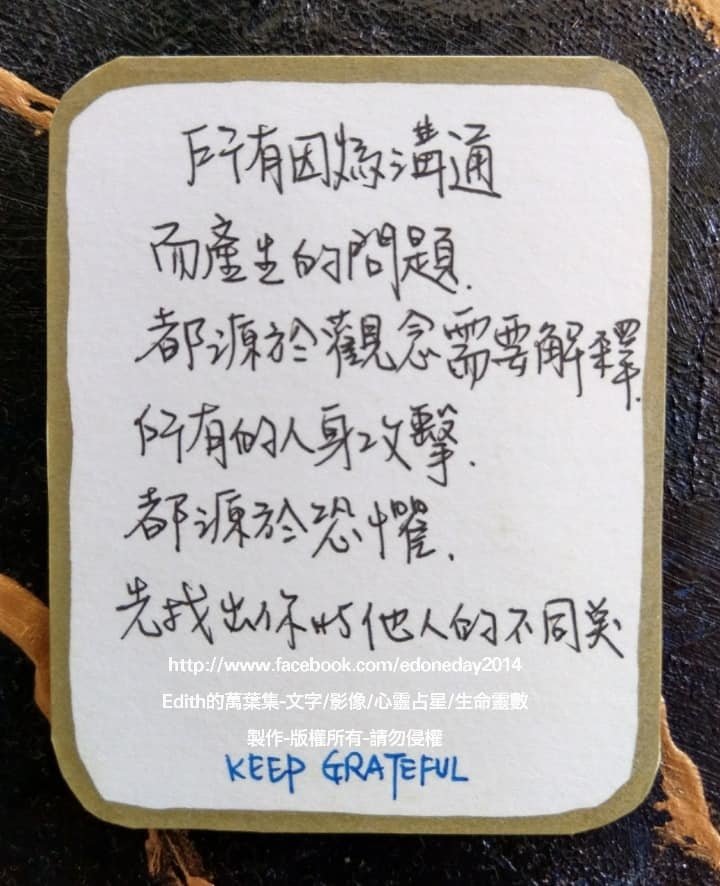 所有因為溝通
而產生的問題.
都源於觀念需要解釋.
所有的人身攻擊.
都源於恐懼.
先找出你的他人的不同美
http://www.facebook.com/edoneday2014
Edith的萬葉集-文字/影像/心靈占星/生命靈數
製作-版權所有-請勿侵權
KEEP GRATEFUL